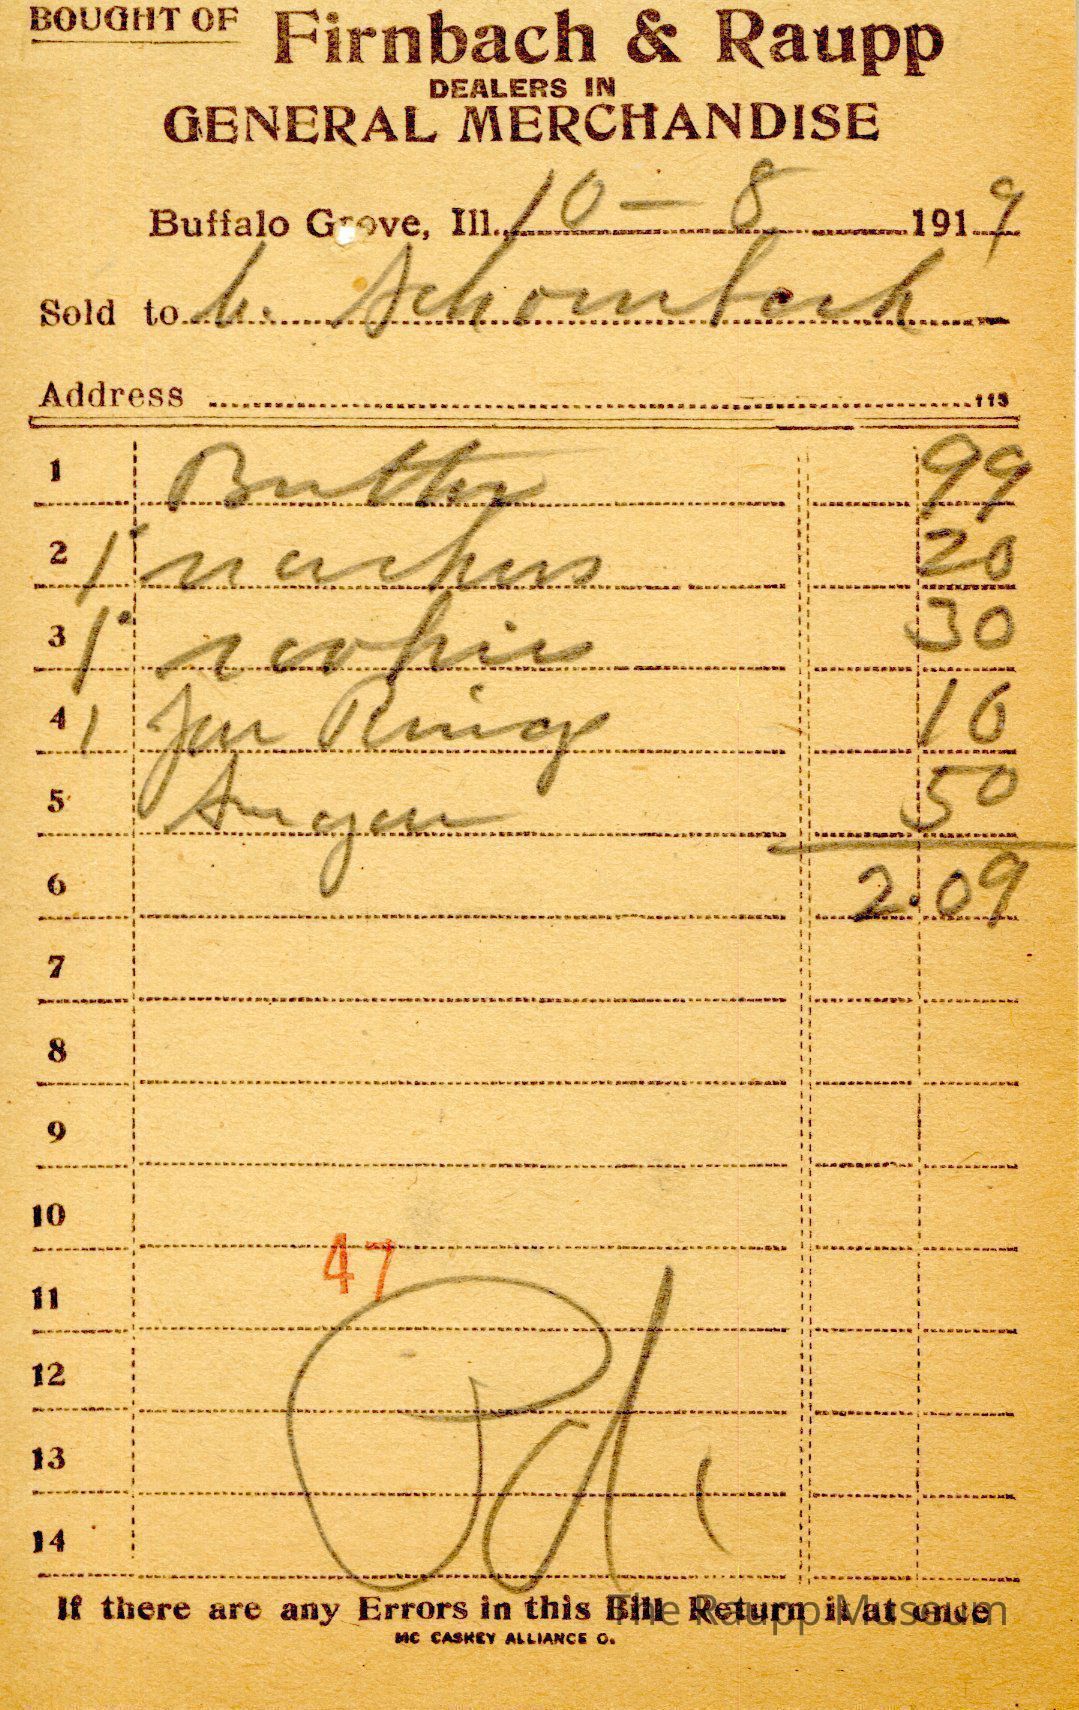 BOUGHT OF Firnbach & Raupp
DEALERS IN
GENERAL MERCHANDISE
Buffalo Grove, Ill. 10 - 8 1919
Sold to
Address 113
1 Butter 99
2 1 20
3 1 30
4 1 Jar Ring 10
5 Sugar 50
6 2.09
7
8
9
10
47
11
12
13
14
Pd.
If there are any Errors in this Bill Return it at once
The Raupp Museum
MC CASKEY ALLIANCE O.